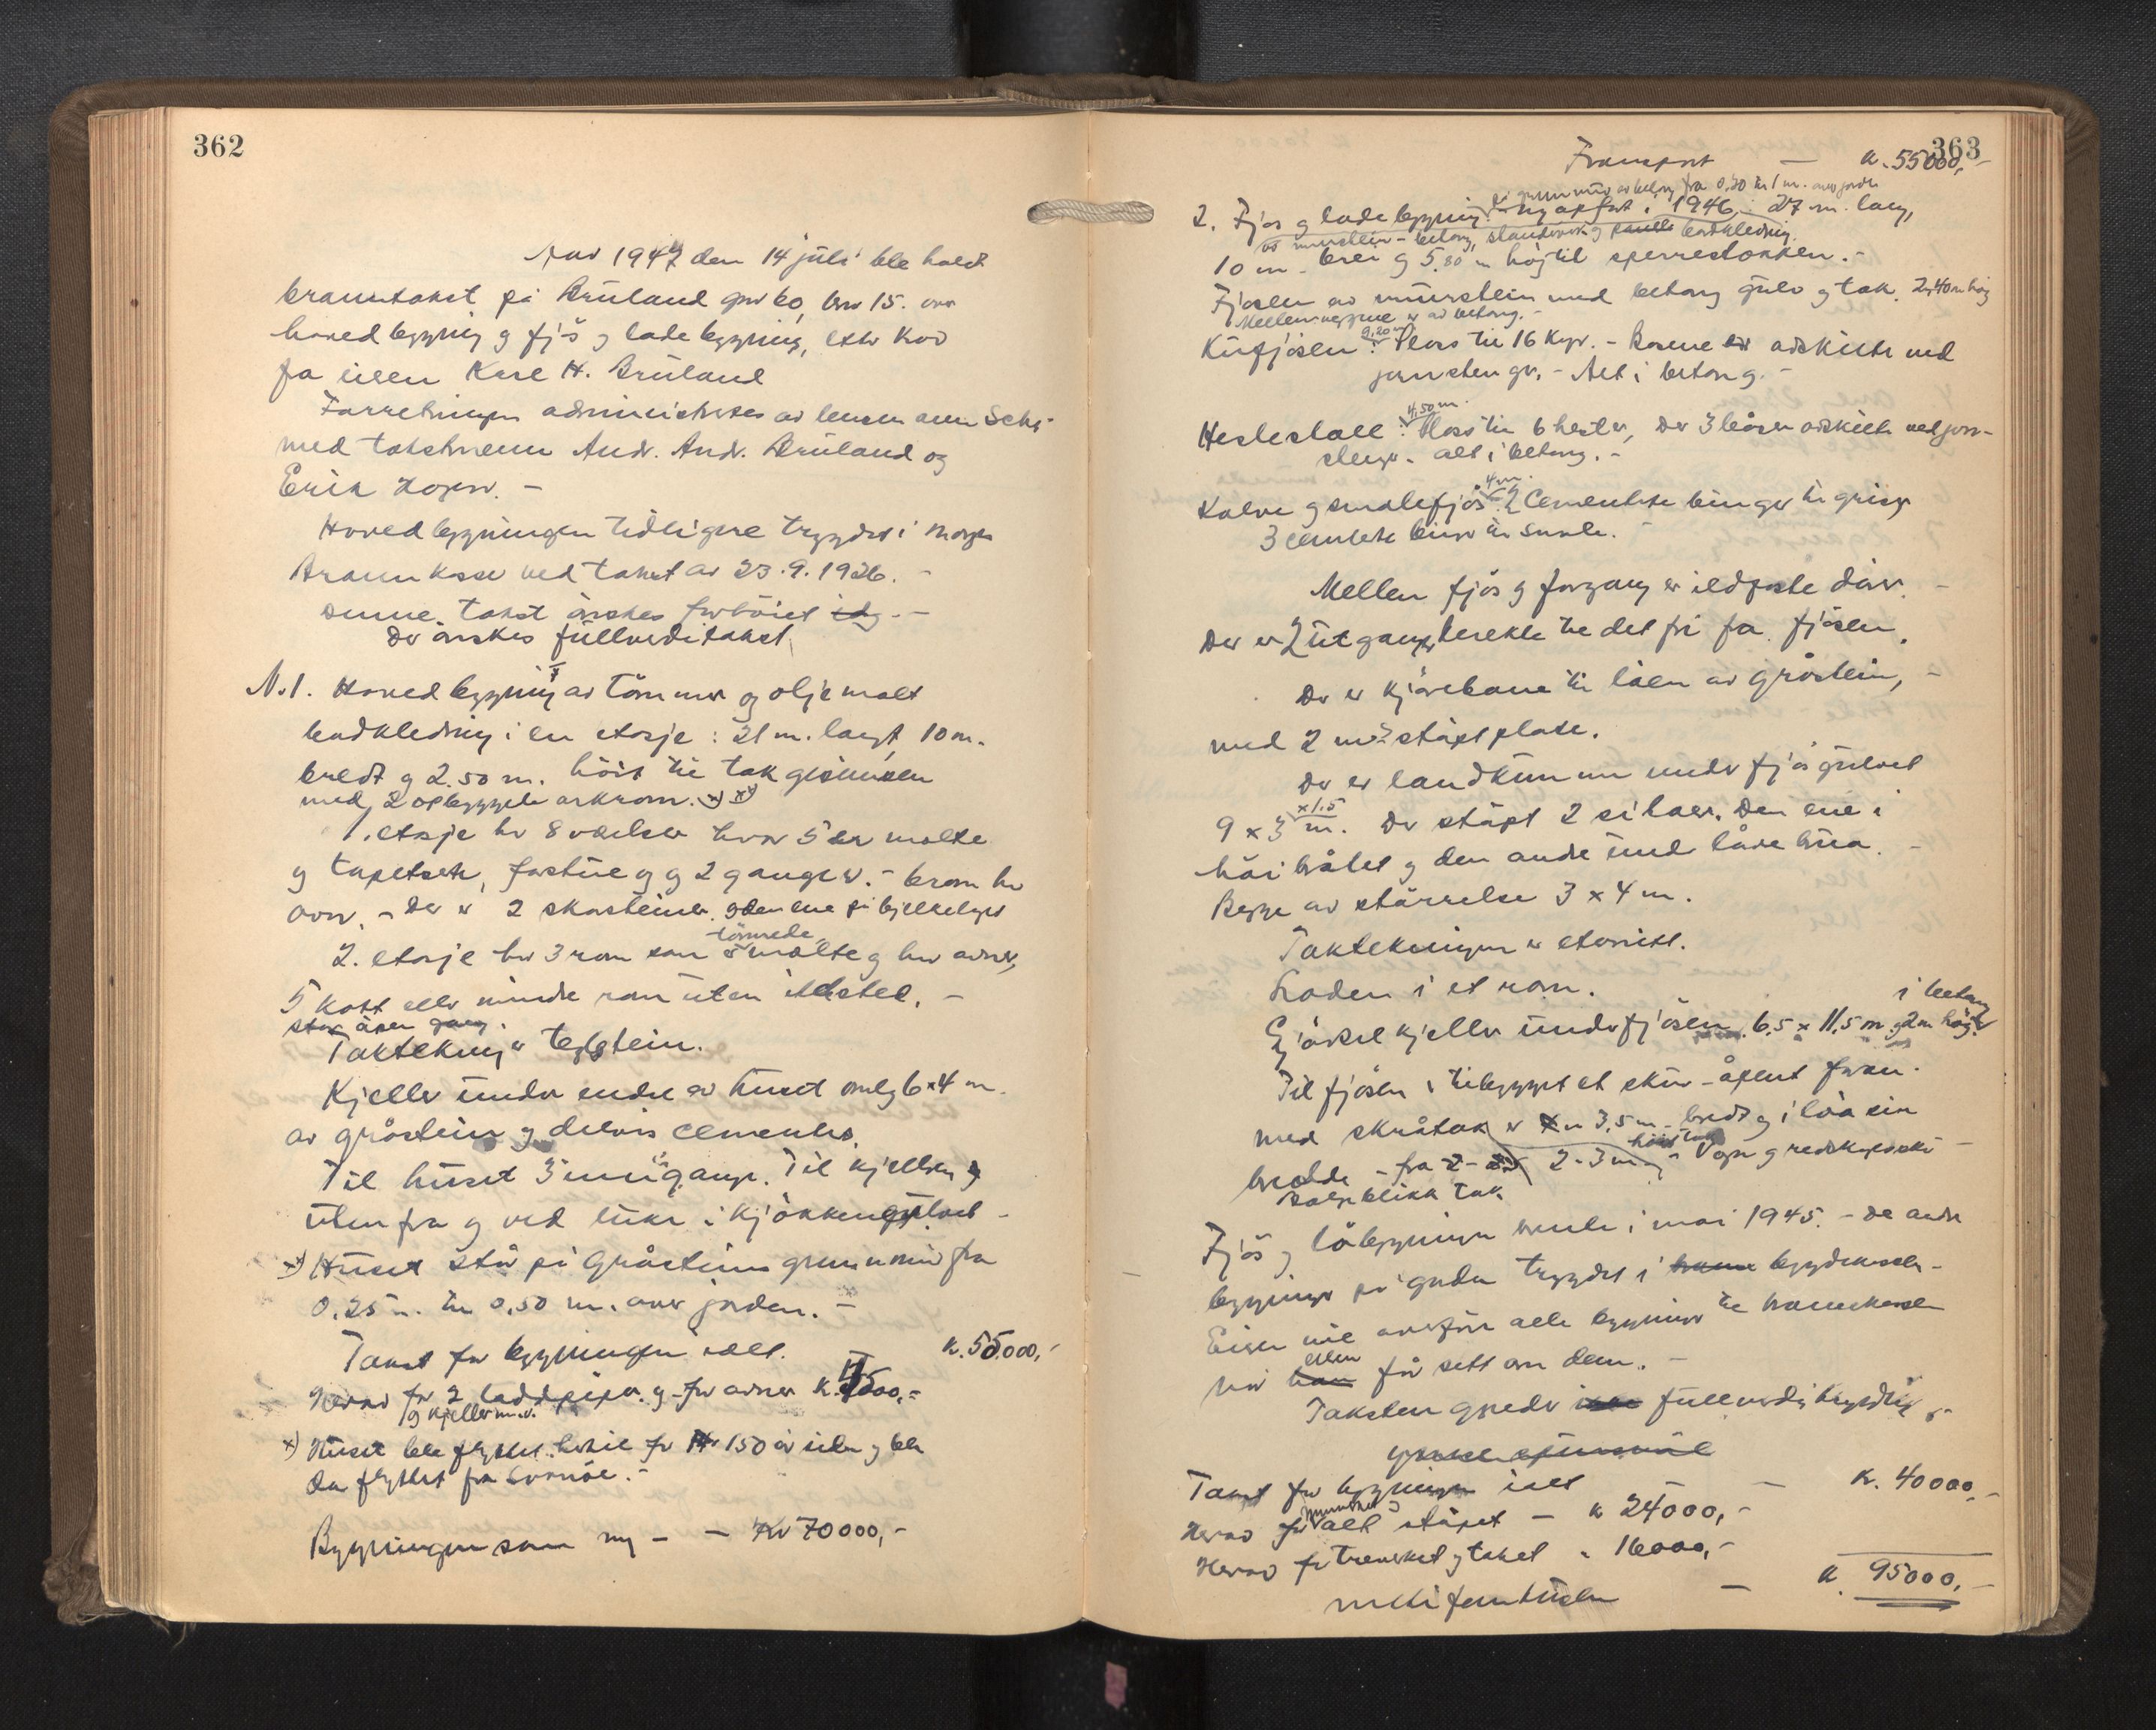 362
Aar 1947 den 14 juli ble holdt
branntakst på Bruland gnr 60, bnr 15. over
hovedbygning og fjøs og ladebygning, etter krav
fra eieren Kare H. Bruland
Forretningen administreres av lensmann
med takstmenn Andr. And. Bruland og
Erik
Hovedbygningen tidligere trygdet i Norges
Brannkasse ved takst av 23.9.1926. -
Denne takst ønskes forhøiet -
Der ønskes fullverditakst.
N.1. Hovedbygning av tømmer og oljemalt
bordkledning i en etasje: 21 m. langt, 10 m.
bredt og 2.50 m. høit til takgesimsen
med 2 opbyggede arkrom. x) xx)
1. etasje har 8 værelser hvor 5 er malte
og tapetserte, forstue og 2 ganger. -
ovn. - Der er 2 skorsteiner og den ene på bjelkelaget
2. etasje har 3 rom som er tømrede malte og har ovner,
5 kott eller mindre rom uten ildsted. -
stor åpen gang.
Taktekning er teglstein.
Kjeller under endel av huset omlag 6x4 m.
av gråstein og delvis cementert.
Til huset 3 inngange. Til kjelleren
utenfra og ved luke i kjøkkengulvet -
xx) Huset står på gråsteins grunnmur fra
0.25 m. til 0,50 m. over jorden. -
Takst for bygningen ialt. k. 55.000,-
Herav for 2 laddpiper og for ovner k.
og kjeller m.v.
x) Huset ble flyttet hertil for 150 år siden og ble
da flyttet fra
Bygningen som ny - - Kr 70000,-
363
Transport - k. 55000,-
på grunnmur av betong fra 0,20 til 1 m. over jorden
2. Fjøs og ladebygning nyopført i 1946, 27 m. lang,
av murstein - betong, standverk og bordkledning.
10 m. brei og 5.80 m høg til sperrestokken. -
Fjøsen av murstein med betong gulv og tak. 2,40 m høg
Mellemveggene er av betong. -
9,20 m.
Kufjøsen: Plass til 16 kyr. - Båsene er adskilte med
jernstenger. - Alt i betong. -
4,50 m.
Hestestall: Plass til 6 hester, der 3 båser adskilte ved jern-
stenger. alt i betong. -
4 m.
Kalve og smalefjøs: 2 Cementerte binger til griser
3 cementerte binger til smale. -
Mellem fjøs og forgang er ildfaste dører. -
Der er 2 utganger direkte til det fri fra fjøsen.
Der er kjørebane til låen av gråstein, -
med 2 m² støpt plate.
Der er landkum under fjøsgulvet
x 1.5
9 x 3 m. Der støpt 2 siloer. Den ene i
og den andre under
Begge av størrelse 3 x 4 m.
Taktekningen er eternitt.
Laden i et rom.
i betong
Gjødselkjeller under fjøsen 6,5 x 11,5 m. og 2 m høg.
Til fjøsen er tilbygget et skur - åpent foran.
med skråtak er 3,5 m. bredt og i løa sin
høi
bredde - fra 2 - 2-3 m. Vogn og redskapsskur -
Bølgeblikk tak
Fjøs og løbygningen brente i mai 1945. - De andre
bygninger på garden trygdet i bygdekassen -
Eieren vil overføre alle bygninger til brannkassen
når eieren får sett om dem. -
Taksten gjelder fullverdi trygding
Takst for bygningen ialt - k. 40000,-
murverket og
Herav for alt støpet - k 24000,-
Herav for treverket og taket " 16000,-
- k. 95000,-